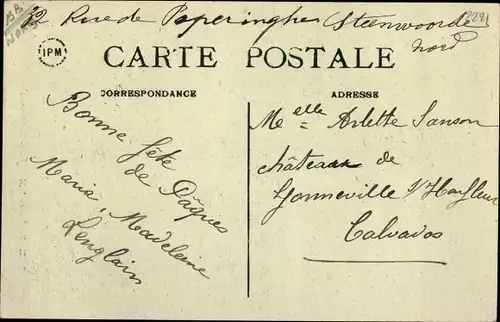 22 Rue de Poperinghe Steenwoorde
nord
IPM
CARTE POSTALE
CORRESPONDANCE
ADRESSE
Bonne fête
de Pâques
Maria, Madeleine
Lenglain
Melle Arlette Sanson
château de
Gonneville s/Honfleur
Calvados